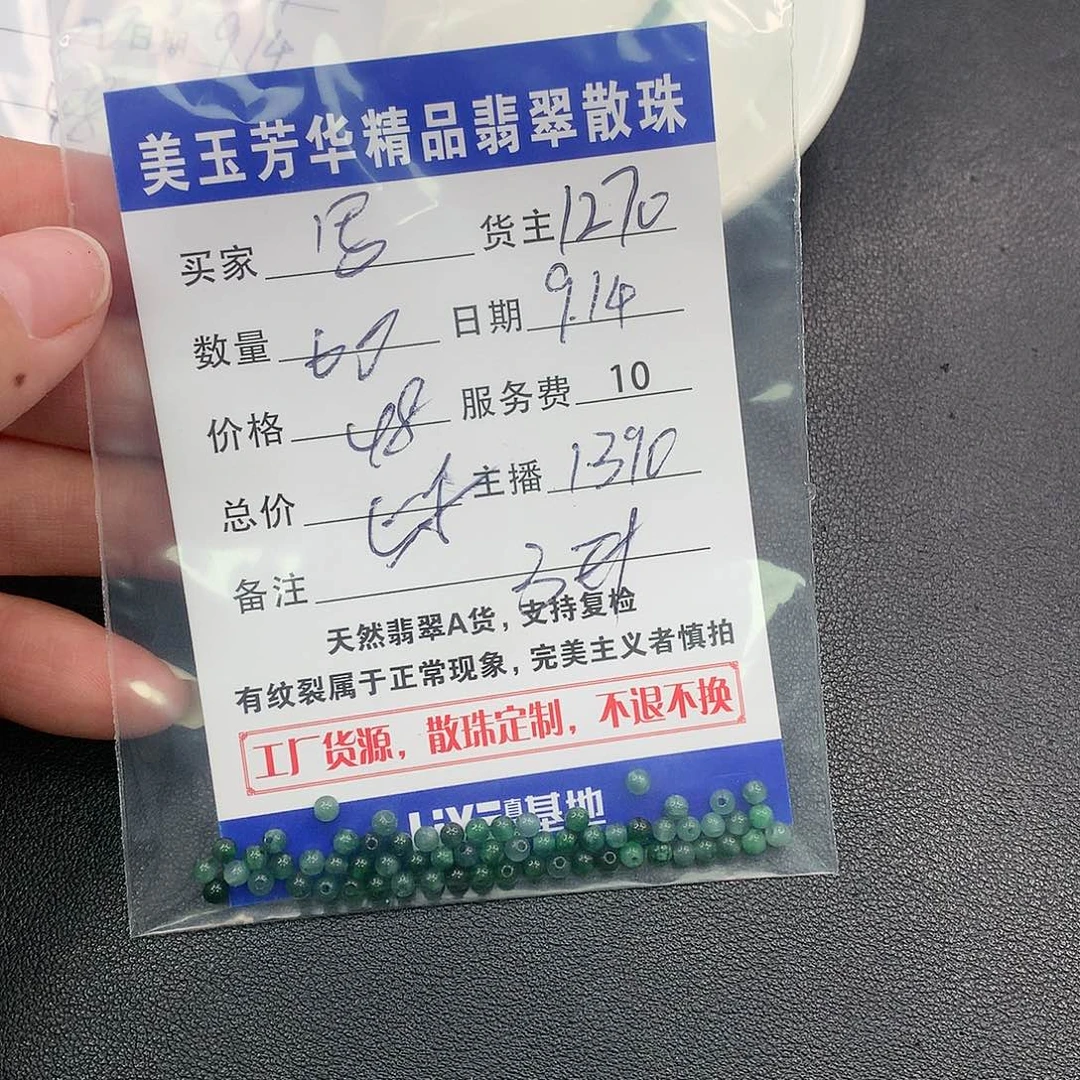 日期 9.14
美玉芳华精品翡翠散珠
买家 货主 1270
数量 60 日期 9.14
价格 48 服务费 10
总价 主播 1390
备注
天然翡翠A货，支持复检
有纹裂属于正常现象，完美主义者慎拍
工厂货源，散珠定制，不退不换
基地